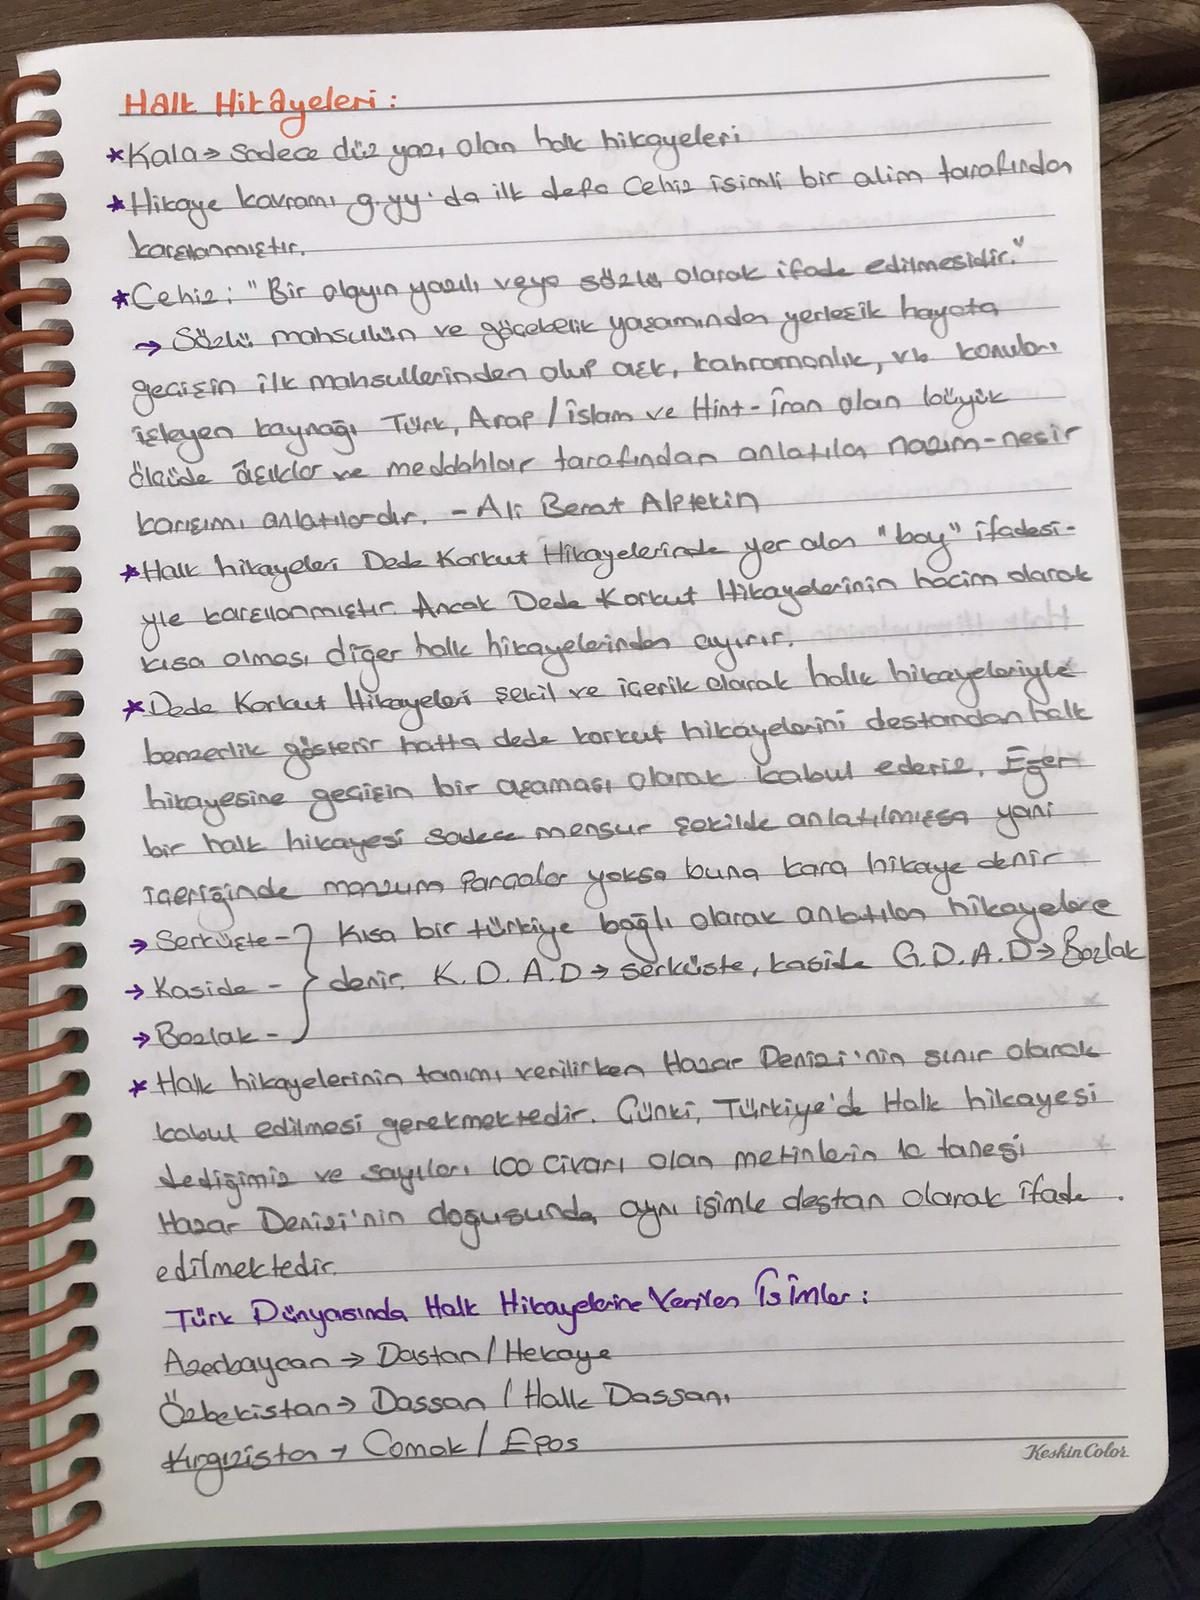 Halk Hikayeleri:
*Kala→ Sadece düz yazı olan halk hikayeleri
*Hikaye kavramı 9.yy'da ilk defa Cehiz isimli bir alim tarafından
karşılanmıştır.
*Cehiz: "Bir olayın yazılı veya sözlü olarak ifade edilmesidir."
→ Sözlü mahsulün ve göçebelik yaşamından yerleşik hayata
geçişin ilk mahsullerinden olup aşk, kahramanlık, vb konuları
işleyen kaynağı Türk, Arap/İslam ve Hint-İran olan büyük
ölçüde âşıklar ve meddahlar tarafından anlatılan nazım-nesir
karışımı anlatılardır. - Ali Berat Alptekin
*Halk hikayeleri Dede Korkut Hikayelerinde yer alan "boy" ifadesi-
yle karşılanmıştır. Ancak Dede Korkut Hikayelerinin hacim olarak
kısa olması diğer halk hikayelerinden ayırır.
*Dede Korkut Hikayeleri şekil ve içerik olarak halk hikayeleriyle
benzerlik gösterir hatta dede korkut hikayelerini destandan halk
hikayesine geçişin bir aşaması olarak kabul ederiz. Eğer
bir halk hikayesi sadece mensur şekilde anlatılmışsa yani
içeriğinde manzum parçalar yoksa buna kara hikaye denir
→ Serküşte - } Kısa bir türkiye bağlı olarak anlatılan hikayelere
→ Kaside - } denir. K.D.A.D→ serküşte, kaside G.D.A.D→ Bozlak
→ Bozlak -
* Halk hikayelerinin tanımı verilirken Hazar Denizi'nin sınır olarak
kabul edilmesi gerekmektedir. Çünki, Türkiye'de Halk hikayesi
dediğimiz ve sayıları 100 civarı olan metinlerin 10 tanesi
Hazar Denizi'nin doğusunda aynı isimle destan olarak ifade
edilmektedir.
Türk Dünyasında Halk Hikayelerine Verilen İsimler:
Azerbaycan → Dastan/Hekaye
Özbekistan→ Dassan / Halk Dassanı
Kırgızistan → Comok / Epos
KeskinColor